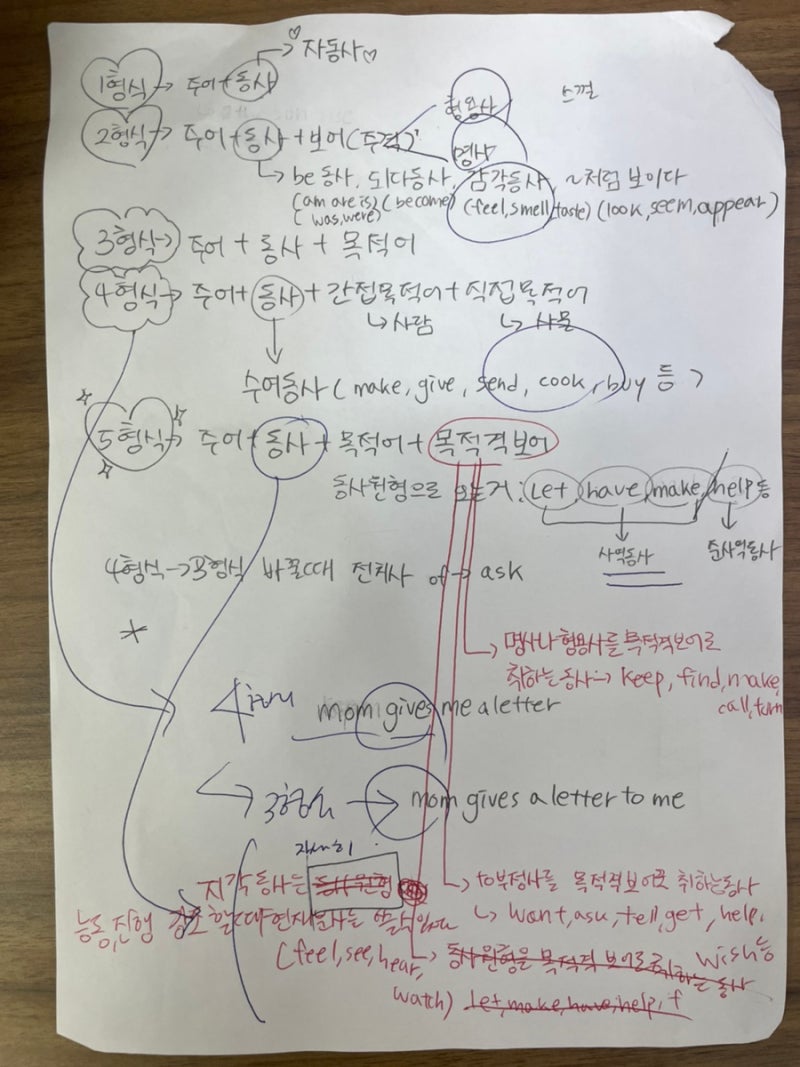 ♡자동사♡
1형식→ 주어+동사
스껄
형용사
2형식→ 주어+동사+보어(주격)
명사
→ be동사, 되다동사, 감각동사, ~처럼 보이다
(am are is) (become) (feel, smell, taste) (look, seem, appear)
(was, were)
3형식→ 주어 + 동사 + 목적어
4형식→ 주어+동사+간접목적어+직접목적어
↳사람 ↳사물
수여동사 (make, give, send, cook, buy 등)
☆5형식→ 주어+동사+목적어+목적격보어
동사원형으로 쓰는거: let, have, make, help 등
사역동사 준사역동사
4형식→3형식 바꿀때 전치사 of→ ask
→ 명사나 형용사를 목적격보어로
취하는 동사→ keep, find, make,
call, turn
4형식 mom gives me a letter
↳ 3형식 → mom gives a letter to me
지각동사는 동사원형
→ to부정사를 목적격보어로 취하는동사
능동, 진행 강조할때 현재분사는 쓸수있다
↳ want, ask, tell, get, help,
wish 등
(feel, see, hear,
watch)
→ 동사원형을 목적격 보어로 취하는 동사
let, make, have, help, f